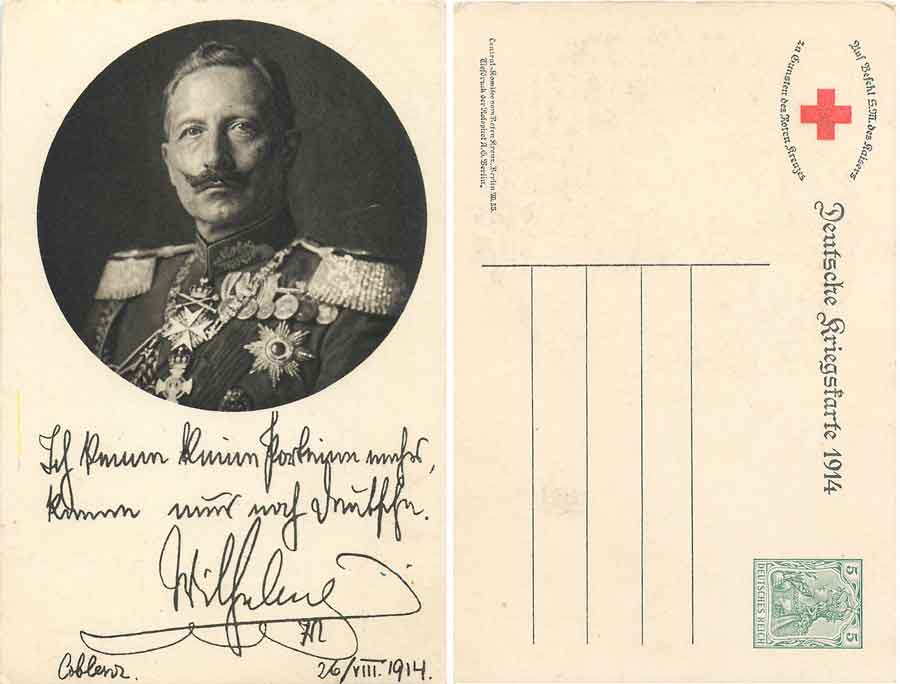 Ich kenne keine Parteien mehr,
kenne nur noch Deutsche.
Wilhelm
I.R.
Coblenz.
26/VIII.1914.
Central-Komitee vom Roten Kreuz, Berlin W.35.
Tiefdruck der Rotophot A.G. Berlin.
Auf Befehl S.M. des Kaisers
zu Gunsten des Roten Kreuzes
Deutsche Kriegskarte 1914
5 DEUTSCHES REICH 5